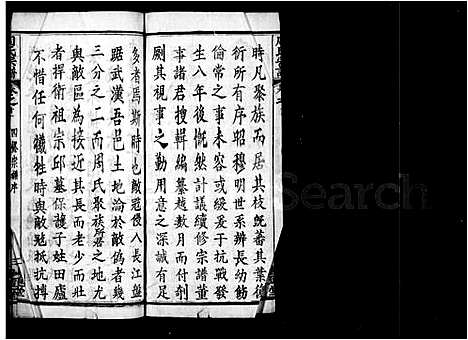 時凡聚族而居其枝旣蕃其葉復
衍所有序昭穆明世系辨長幼飭
倫常之事未容或緩自抗戰發
生八年以後慨然計議續修宗譜董
事諸君相輯編纂越數月而付剞
劂其視事之勤用意之深誠有足
多者焉斯時也敵寇侵入長江盤
踞武漢吾邑土地淪於敵偽者幾
三分之二而周氏聚族所居之地尤
與敵區為接近其長而老少而壯
者捍衛祖宗邱墓保護子姪田廬
不惜任何犧牲時與敵寇抵抗搏
周氏宗譜
Search